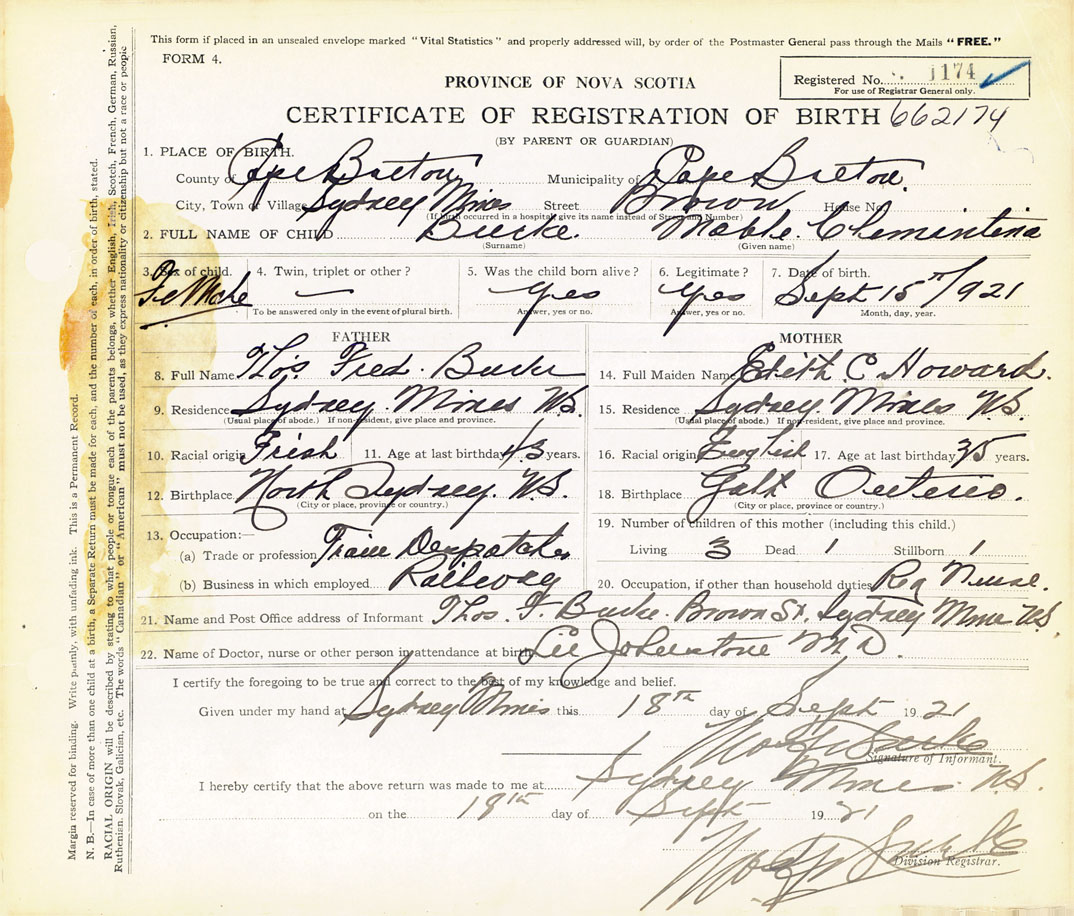 This form if placed in an unsealed envelope marked "Vital Statistics" and properly addressed will, by order of the Postmaster General pass through the Mails "FREE."
FORM 4.
Registered No. 1174
For use of Registrar General only.
PROVINCE OF NOVA SCOTIA
CERTIFICATE OF REGISTRATION OF BIRTH 662174
(BY PARENT OR GUARDIAN)
1. PLACE OF BIRTH.
County of Cape Breton Municipality of Cape Breton.
City, Town or Village Sydney Mines Street Brown House No.
(If birth occurred in a hospital give its name instead of Street and Number)
2. FULL NAME OF CHILD Burke. Mable Clementina
(Surname) (Given name)
3. Sex of child. 4. Twin, triplet or other? 5. Was the child born alive? 6. Legitimate? 7. Date of birth.
FeMale — Yes Yes Sept 15th 1921
To be answered only in the event of plural birth. Answer, yes or no. Answer, yes or no. Month, day, year.
FATHER MOTHER
8. Full Name Thos. Fred. Burke 14. Full Maiden Name Edith C. Howard.
9. Residence Sydney Mines N.S. 15. Residence Sydney Mines N.S.
(Usual place of abode.) If non-resident, give place and province. (Usual place of abode.) If non-resident, give place and province.
10. Racial origin Irish 11. Age at last birthday 43 years. 16. Racial origin English 17. Age at last birthday 35 years.
12. Birthplace North Sydney. N.S. 18. Birthplace Galt Onterio.
(City or place, province or country.) (City or place, province or country.)
13. Occupation:— 19. Number of children of this mother (including this child.)
(a) Trade or profession Train Despatcher Living 3 Dead 1 Stillborn 1
(b) Business in which employed Railway 20. Occupation, if other than household duties Reg Nurse.
21. Name and Post Office address of Informant Thos. F. Burke Brown St. Sydney Mines N.S.
22. Name of Doctor, nurse or other person in attendance at birth Johnstone M.D.
I certify the foregoing to be true and correct to the best of my knowledge and belief.
Given under my hand at Sydney Mines this 18th day of Sept 1921
Signature of Informant.
I hereby certify that the above return was made to me at Sydney Mines N.S.
on the 19th day of Sept 1921
Division Registrar.
Margin reserved for binding. Write plainly, with unfading ink. This is a Permanent Record.
N. B.—In case of more than one child at a birth, a Separate Return must be made for each, and the number of each, in order of birth, stated.
RACIAL ORIGIN will be described by stating to what people or tongue each of the parents belongs, whether English, Irish, Scotch, French, German, Russian,
Ruthenian, Slovak, Galician, etc. The words "Canadian" or "American" must not be used, as they express nationality or citizenship but not a race or people